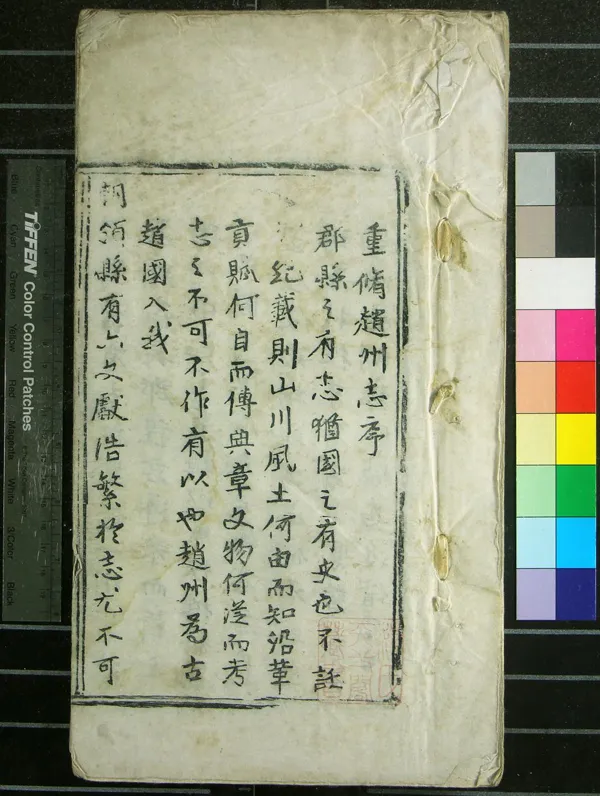 重脩趙州志序
郡縣之有志猶國之有史也不託
紀載則山川風土何由而知沿革
貢賦何自而傳典章文物何從而考
志之不可不作有以也趙州爲古
趙國入我
朝領縣有六文獻浩繁於志尤不可
TIFFEN Color Control Patches
Blue Cyan Green Yellow Red Magenta White 3/Color Black